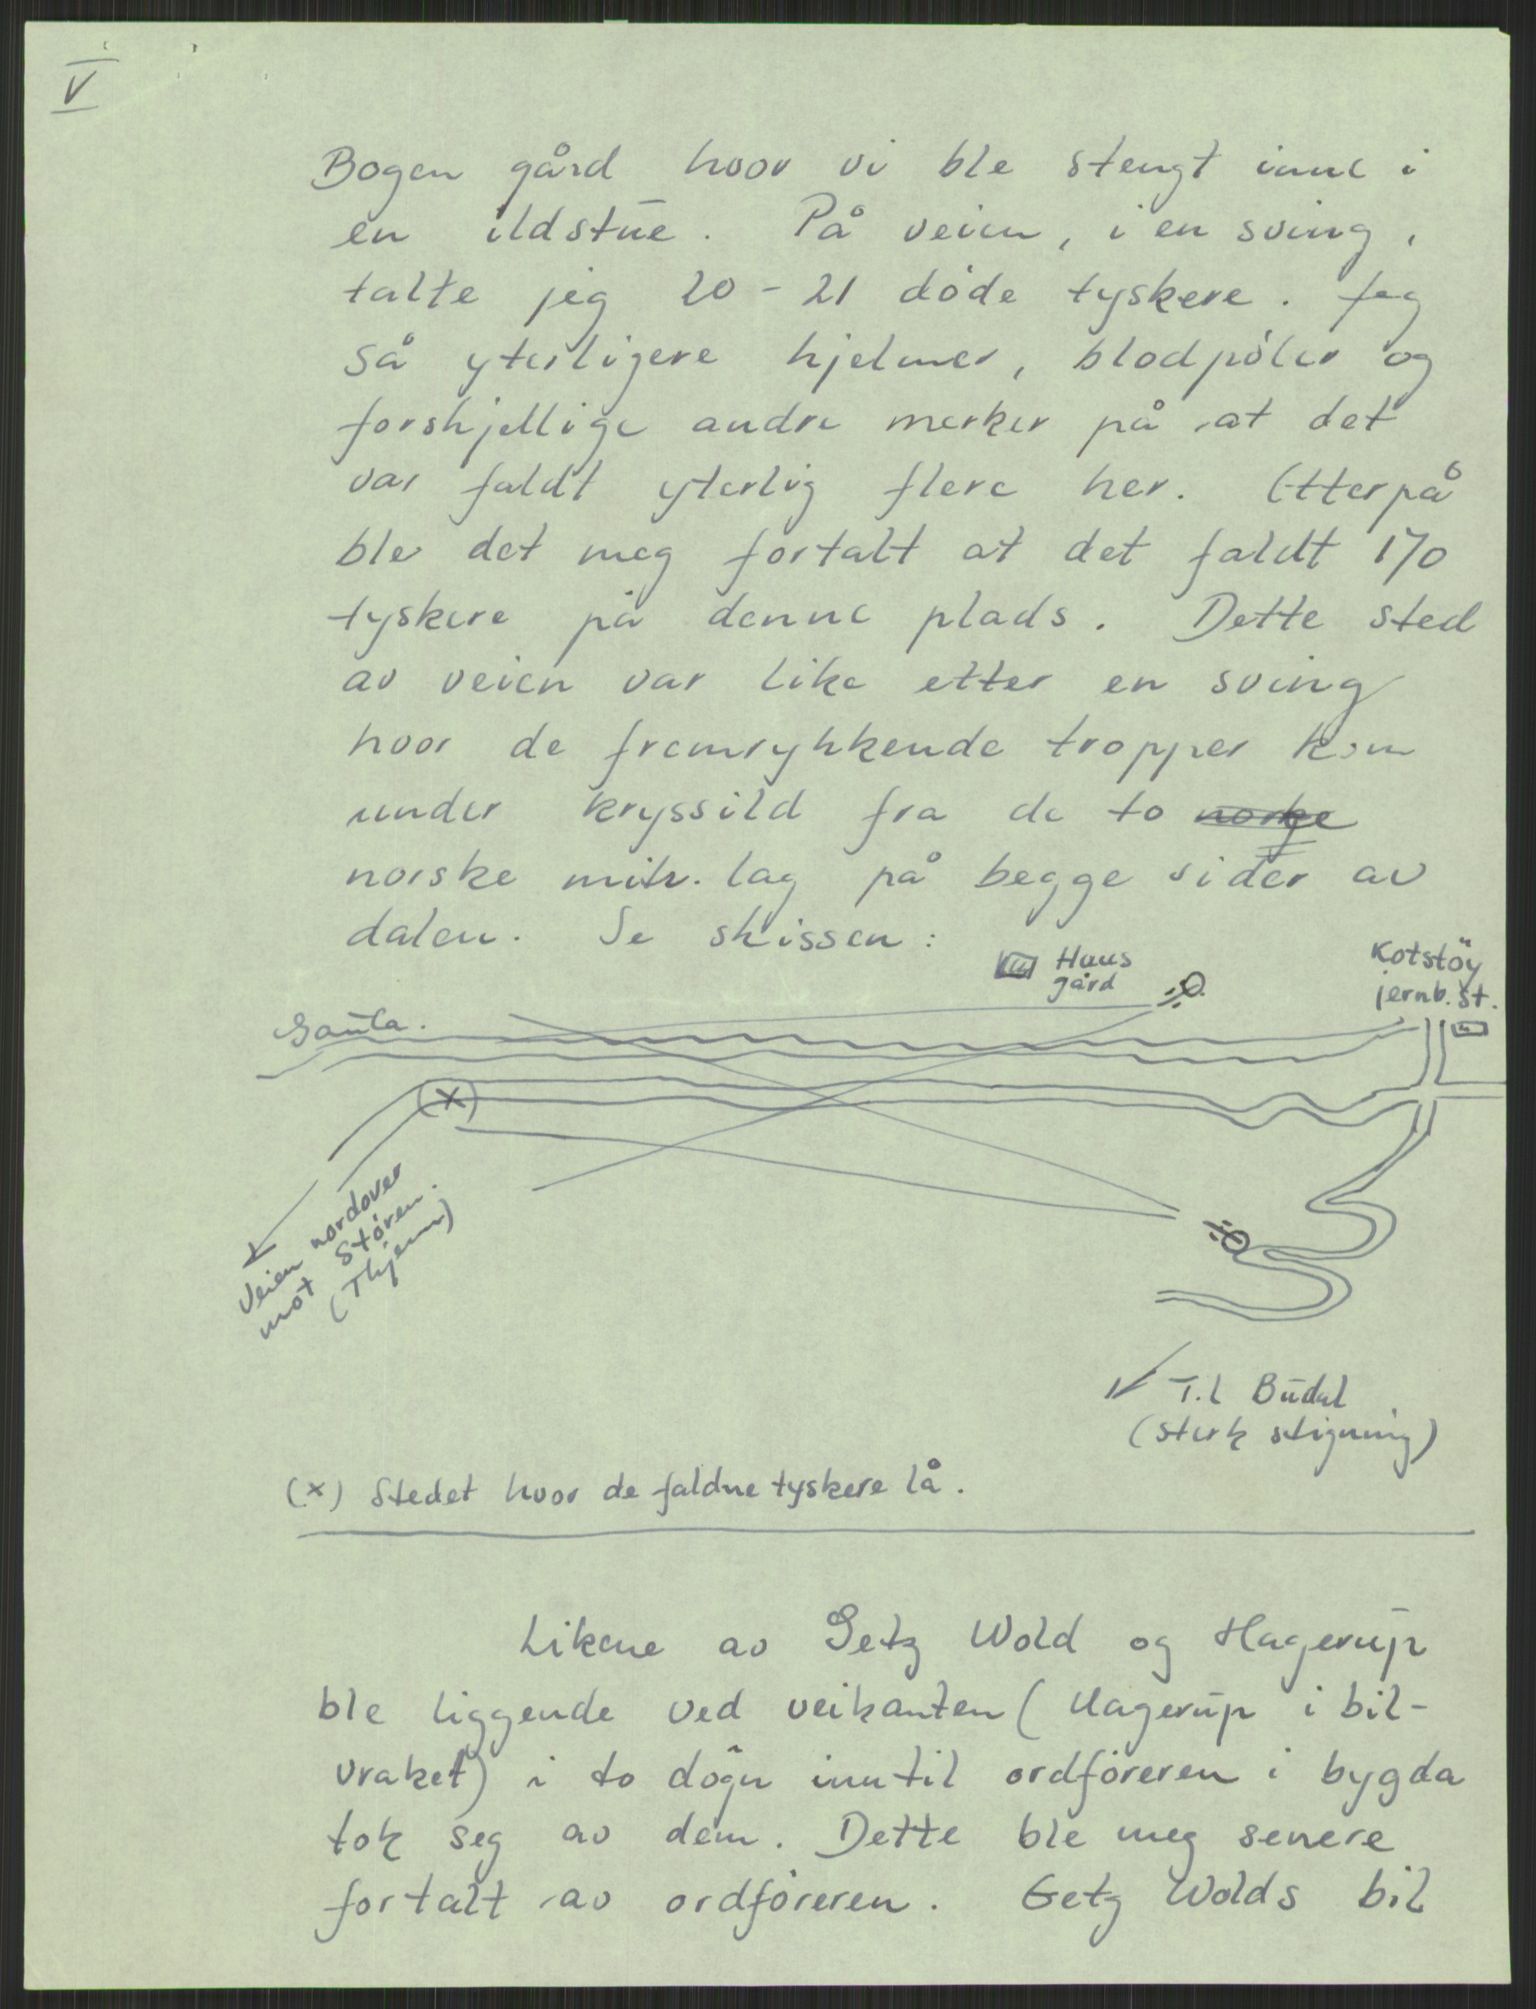 V
Bogen gård hvor vi ble stengt inne i
en ildstue. På veien, i en sving,
talte jeg 20-21 døde tyskere. Jeg
så yterligere hjelmer, blodpøler og
forskjellige andre merker på at det
var faldt yterlig flere her. Etterpå
ble det meg fortalt at det faldt 170
tyskere på denne plads. Dette sted
av veien var like etter en sving
hvor de fremrykkende tropper kom
under kryssild fra de to norge
norske mitr. lag på begge sider av
dalen. Se skissen:
Haus
gård
Kotstöy
jernb. st.
Gaula.
(x)
Veien nordover
mot Støren.
(Thjem)
Til Budal
(sterk stigning)
(x) Stedet hvor de faldne tyskere lå.
Likene av Getz Wold og Hagerup
ble liggende ved veikanten (Hagerup i bil-
vraket) i to døgn inntil ordføreren i bygda
tok seg av dem. Dette ble meg senere
fortalt av ordføreren. Getz Wolds bil